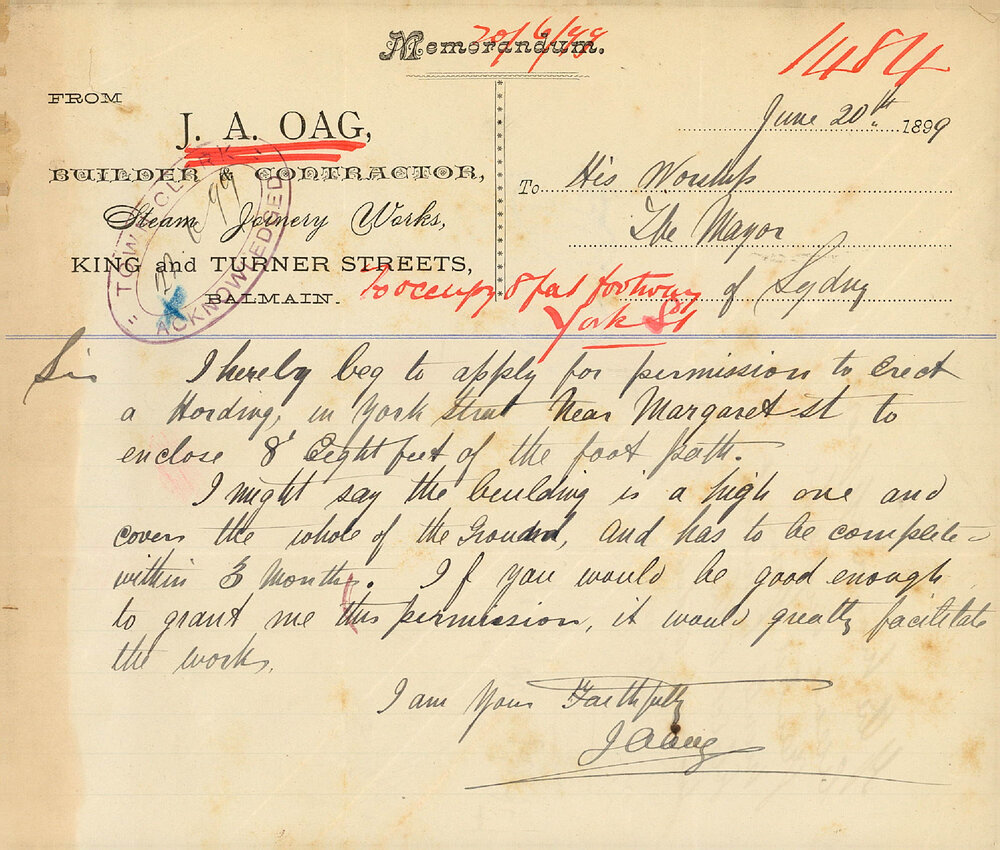 Memorandum.
20/6/99
1484
FROM
J. A. OAG,
BUILDER & CONTRACTOR,
Steam Joinery Works,
KING and TURNER STREETS,
BALMAIN.
"TOWN CLERK"
ACKNOWLEDGED
99
June 20th 1899
To His Worship
The Mayor
of Sydney
To occupy 8 feet footway
York St
Sir I hereby beg to apply for permission to erect
a Hording, in York Street Near Margaret st to
enclose 8' Eight feet of the foot path.
I might say the building is a high one and
covers the whole of the Ground, and has to be complete
within 3 months. If you would be good enough
to grant me this permission, it would greatly facilitate
the works.
I am Yours Faithfully
J A Oag